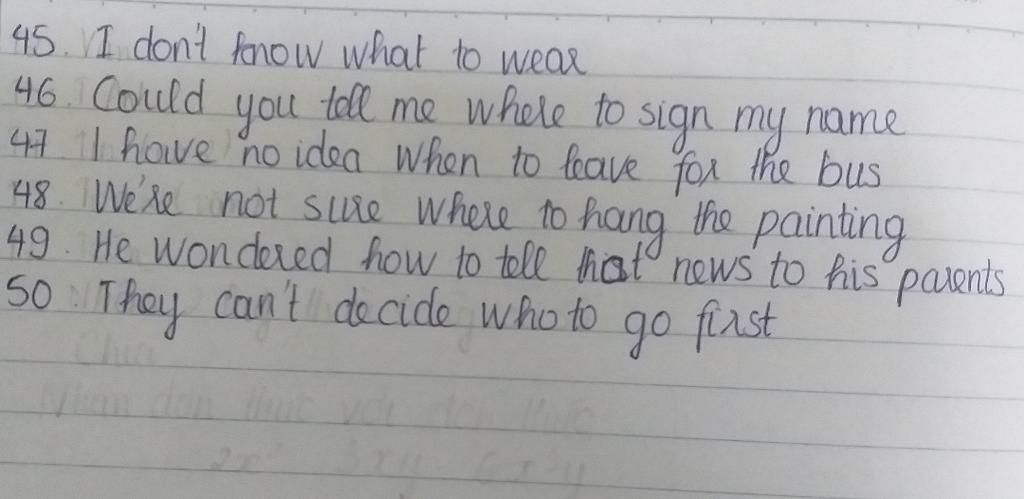 45. I don't know what to wear
46. Could you tell me where to sign my name
47 I have no idea when to leave for the bus
48. We're not sure where to hang the painting
49. He wondered how to tell that news to his parents
50. They can't decide who to go first